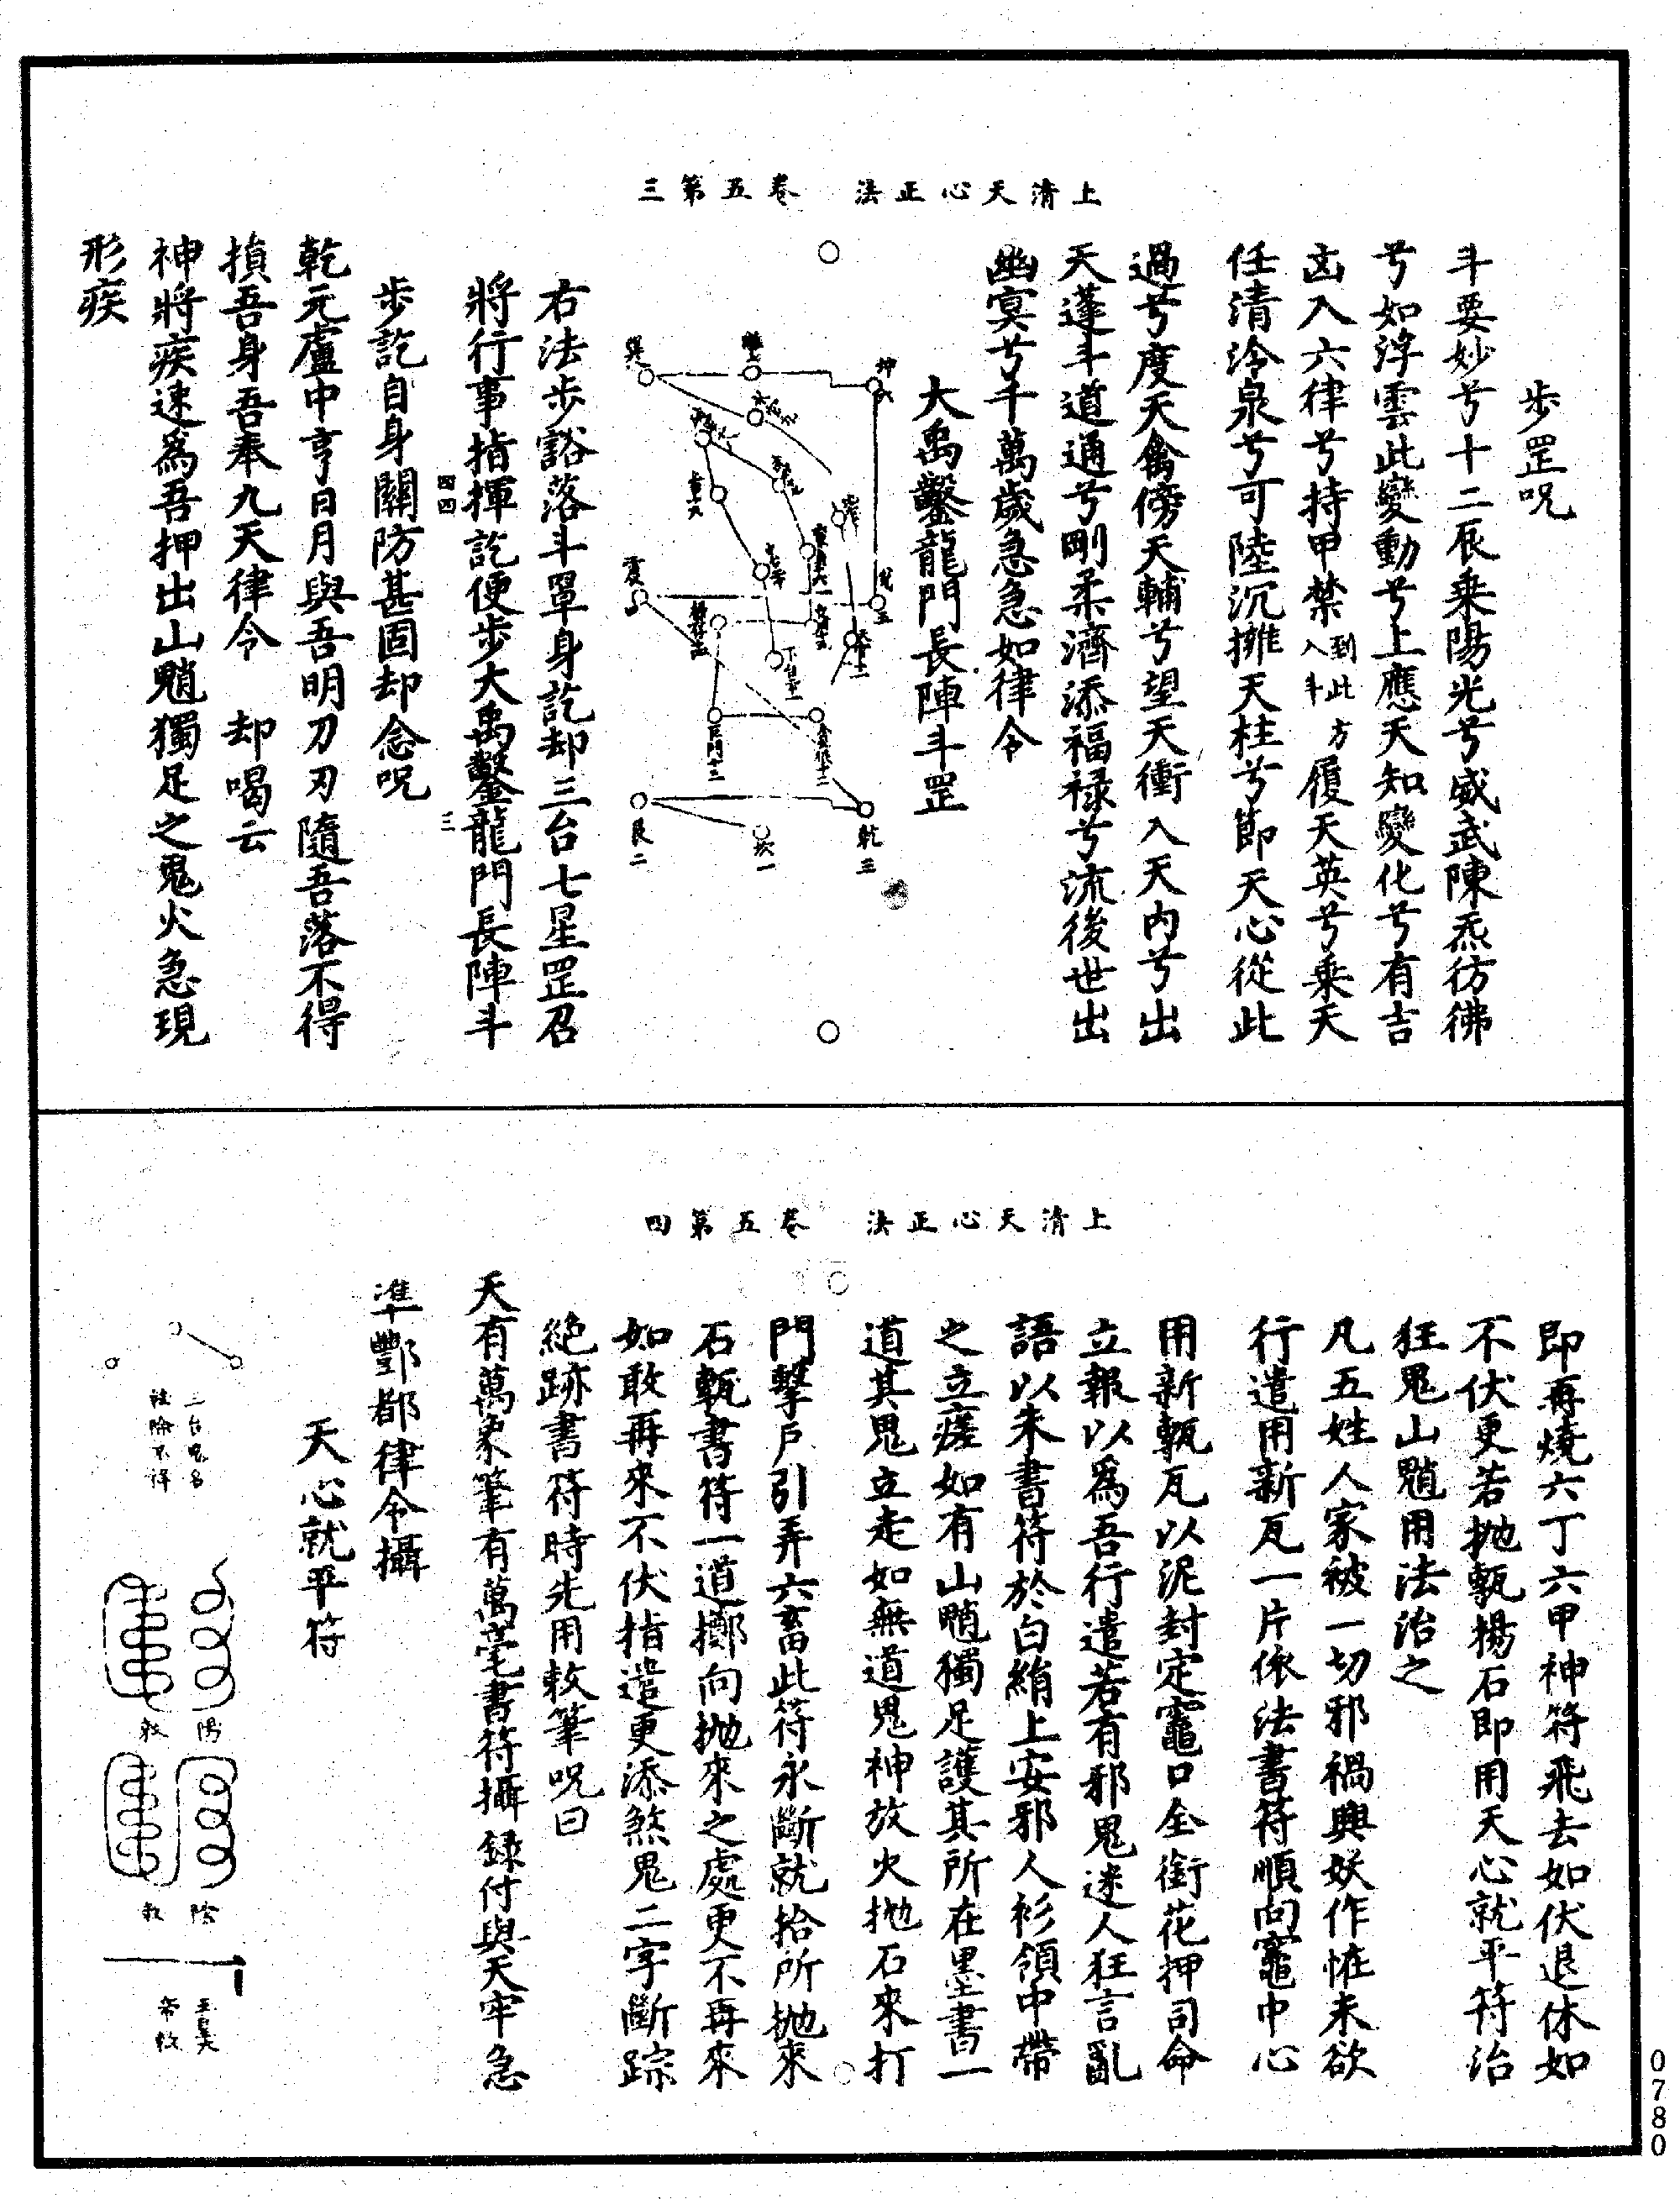 上清天心正法　卷五第三
步罡呪
斗要妙兮十二辰乗陽光兮威武陳炁彷彿
兮如浮雲此變動兮上應天知變化兮有吉
凶入六律兮持甲禁到此入斗方履天英兮乗天
任清泠泉兮可陸沉擁天柱兮節天心從此
過兮度天禽傍天輔兮望天衝入天内兮出
天蓬斗道通兮剛柔濟添福禄兮流後世出
幽冥兮千萬歲急急如律令
大禹鑿龍門長陣斗罡
巽
坤
震
艮二
坎一
乾三
右法步豁落斗罩身訖却三台七星罡召
將行事指揮訖便步大禹鑿龍門長陣斗
四四
三
步訖自身關防甚固却念呪
乾元廬中亨日月與吾明刀刃隨吾落不得
損吾身吾奉九天律令　却喝云
神將疾速為吾押出山魈獨足之鬼火急現
形疾
上清天心正法　卷五第四
即再燒六丁六甲神符飛去如伏退休如
不伏更若抛甎揚石即用天心就平符治
狂鬼山魈用法治之
凡五姓人家被一切邪禍興妖作恠未欲
行遣用新瓦一片依法書符順向竈中心
用新甎瓦以泥封定竈口全銜花押司命
立報以為吾行遣若有邪鬼迷人狂言亂
語以朱書符於白絹上安邪人衫領中帶
之立瘥如有山魈獨足護其所在墨書一
道其鬼立走如無道鬼神放火抛石來打
門擊戶引弄六畜此符永斷就拾所抛來
石甎書符一道擲向抛來之處更不再來
如敢再來不伏指遣更添煞鬼二字斷踪
絶跡書符時先用敕筆呪曰
天有萬象筆有萬毫書符攝録付與天牢急
準酆都律令攝
天心就平符
三台鬼名
陽
敕
陰
敕
玉皇大
帝敕
0780